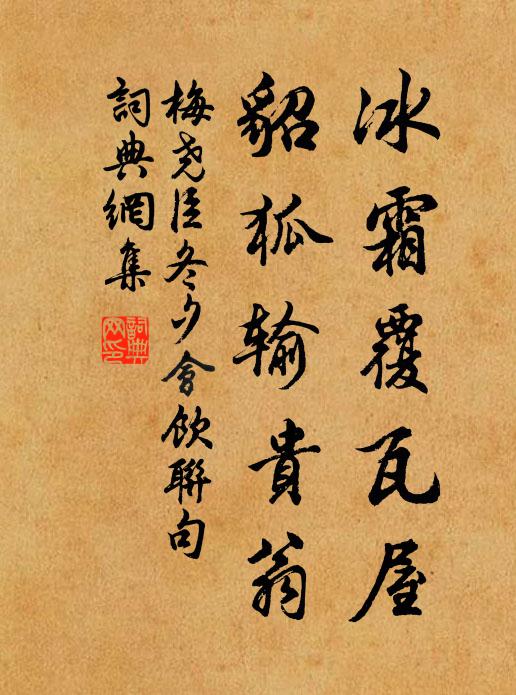 冰霜覆瓦屋
貂狐输貴翁
梅尧臣冬夕會飲聯句
詞典網集
詞典网印